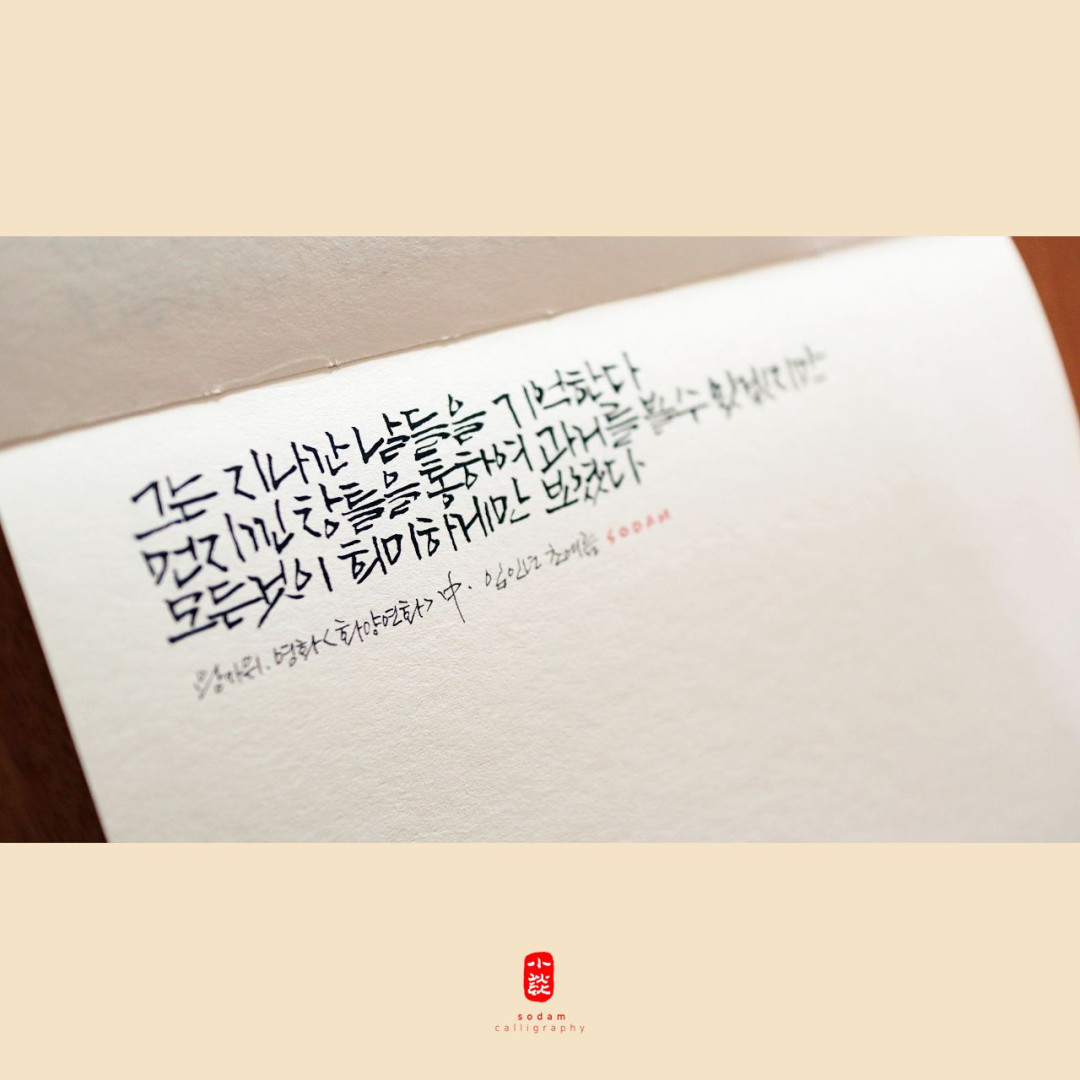 그는 지나간 날들을 기억한다
먼지낀 창틀을 통하여 과거를 볼 수 있겠지만
모든것이 희미하게만 보였다.
왕가위. 영화<화양연화>中. 임인년 초여름 SODAM
小談
sodam
calligraphy